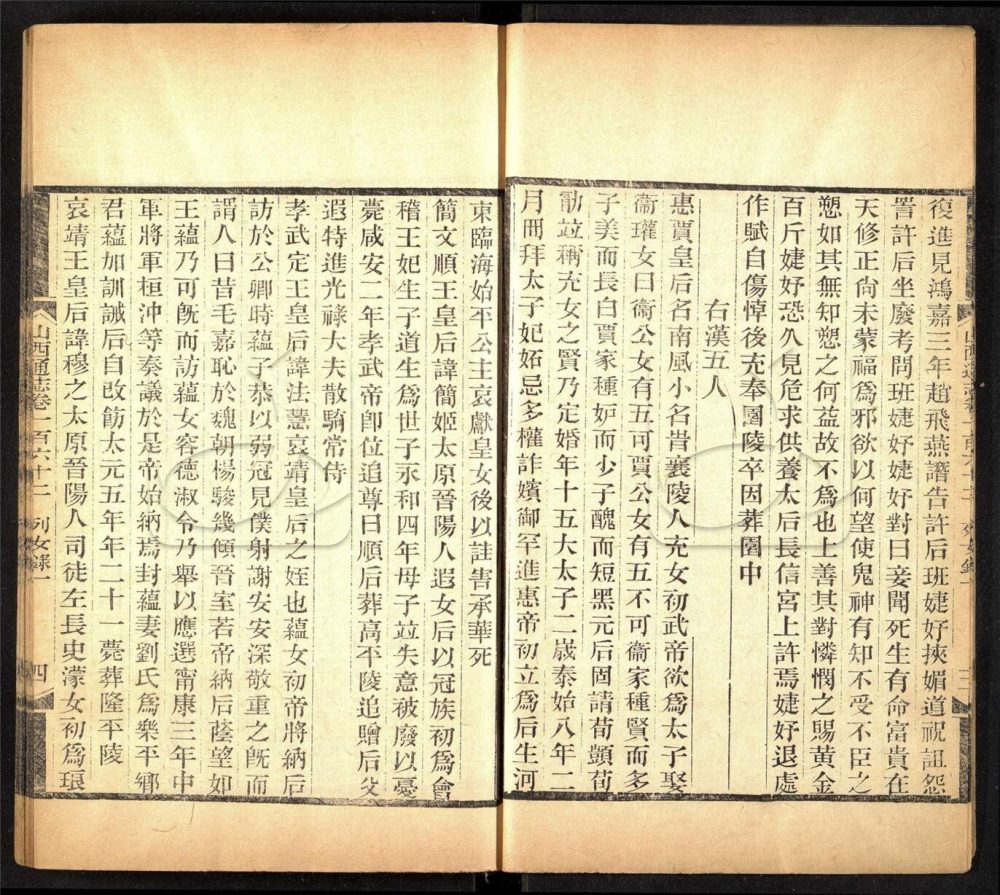 復進見鴻嘉三年趙飛燕譖告許后班婕妤挾媚道祝詛怨
詈許后坐廢考問班婕妤婕妤對曰妾聞死生有命富貴在
天修正尚未蒙福爲邪欲以何望使鬼神有知不受不臣之
愬如其無知愬之何益故不爲也上善其對憐憫之賜黃金
百斤婕妤恐久見危求供養太后長信宮上許焉婕妤退處
作賦自傷悼後充奉園陵卒因葬園中
右漢五人
惠賈皇后名南風小名旹襄陵人充女初武帝欲爲太子娶
衞瓘女曰衞公女有五可賈公女有五不可衞家種賢而多
子美而長白賈家種妒而少子醜而短黑元后固請荀顗荀
勖竝稱充女之賢乃定婚年十五大太子二歲泰始八年二
月冊拜太子妃妬忌多權詐嬪御罕進惠帝初立爲后生河
東臨海始平公主哀獻皇女後以詿害承華死
簡文順王皇后諱簡姬太原晉陽人遐女后以冠族初爲會
稽王妃生子道生爲世子永和四年母子竝失意被廢以憂
薨咸安二年孝武帝卽位追尊曰順后葬高平陵追贈后父
遐特進光祿大夫散騎常侍
孝武定王皇后諱法慧哀靖皇后之姪也蘊女初帝將納后
訪於公卿時蘊子恭以弱冠見僕射謝安安深敬重之旣而
謂人曰昔毛嘉恥於魏朝楊駿幾傾晉室若帝納后蔭望如
王蘊乃可旣而訪蘊女容德淑令乃舉以應選甯康三年中
軍將軍桓沖等奏議於是帝始納焉封蘊妻劉氏爲樂平鄉
君蘊加訓誡后自改飭太元五年年二十一薨葬隆平陵
哀靖王皇后諱穆之太原晉陽人司徒左長史濛女初爲琅
山西通志卷一百六十二 列女錄一 四